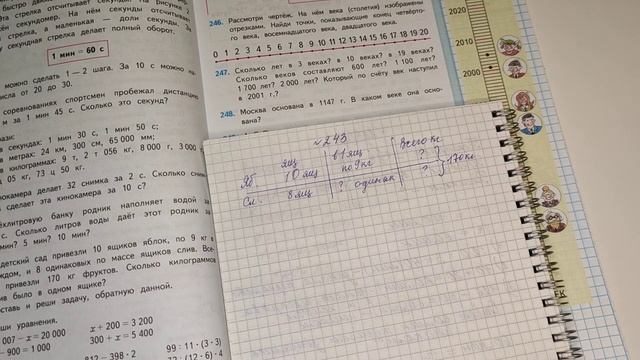 стрелка, а маленькая — доли секунды. За
секундная стрелка делает полный оборот.
1 мин = 60 с
можно сделать 1—2 шага. За 10 с можно
числа от 20 до 30.
соревнованиях спортсмен пробежал дистанцию
за 1 мин 45 с. Сколько это секунд?
в секундах: 1 мин 30 с, 1 мин 50 с;
в метрах: 24 км, 300 см, 65 000 мм;
в килограммах: 9 т, 2 т 056 кг, 8 000 г, 3 000
05 кг, 73 ц 50 кг.
делает 32 снимка за 2 с. Сколько
сделает эта кинокамера за 10 с?
банку родник наполняет водой за
с. Сколько литров воды даёт этот родник за
мин? 5 мин? 10 мин?
детский сад привезли 10 ящиков яблок, по 9 кг в
и 8 одинаковых по массе ящиков слив.
привезли 170 кг фруктов. Сколько килограммов
слив было в одном ящике?
и реши задачу, обратную данной.
уравнения.
007 − x = 20 000
x + 200 = 3 200
− 900 = 1 000
300 + x = 5 400
812 − 398 · 2
99 : 11 · (3 · 3)
72 : (12 · 6) · 4
246. Рассмотри чертёж. На нём века (столетия) изображены
отрезками. Найди точки, показывающие конец четвёрто-
го века, восемнадцатого века, двадцатого века.
0 1 2 3 4 5 6 7 8 9 10 11 12 13 14 15 16 17 18 19 20
247. Сколько лет в 3 веках? в 10 веках? в 19 веках?
Сколько веков составляют 600 лет? 1 100 лет?
1 700 лет? 2 000 лет? Который по счёту век наступил
в 2001 г.?
248. Москва основана в 1147 г. В каком веке она осно-
вана?
2020
2010
2000
№243
ящ в 1 ящ Всего кг
Яб. 10 ящ по 9 кг ?
Сл. 8 ящ ? одинак ? } 170 кг